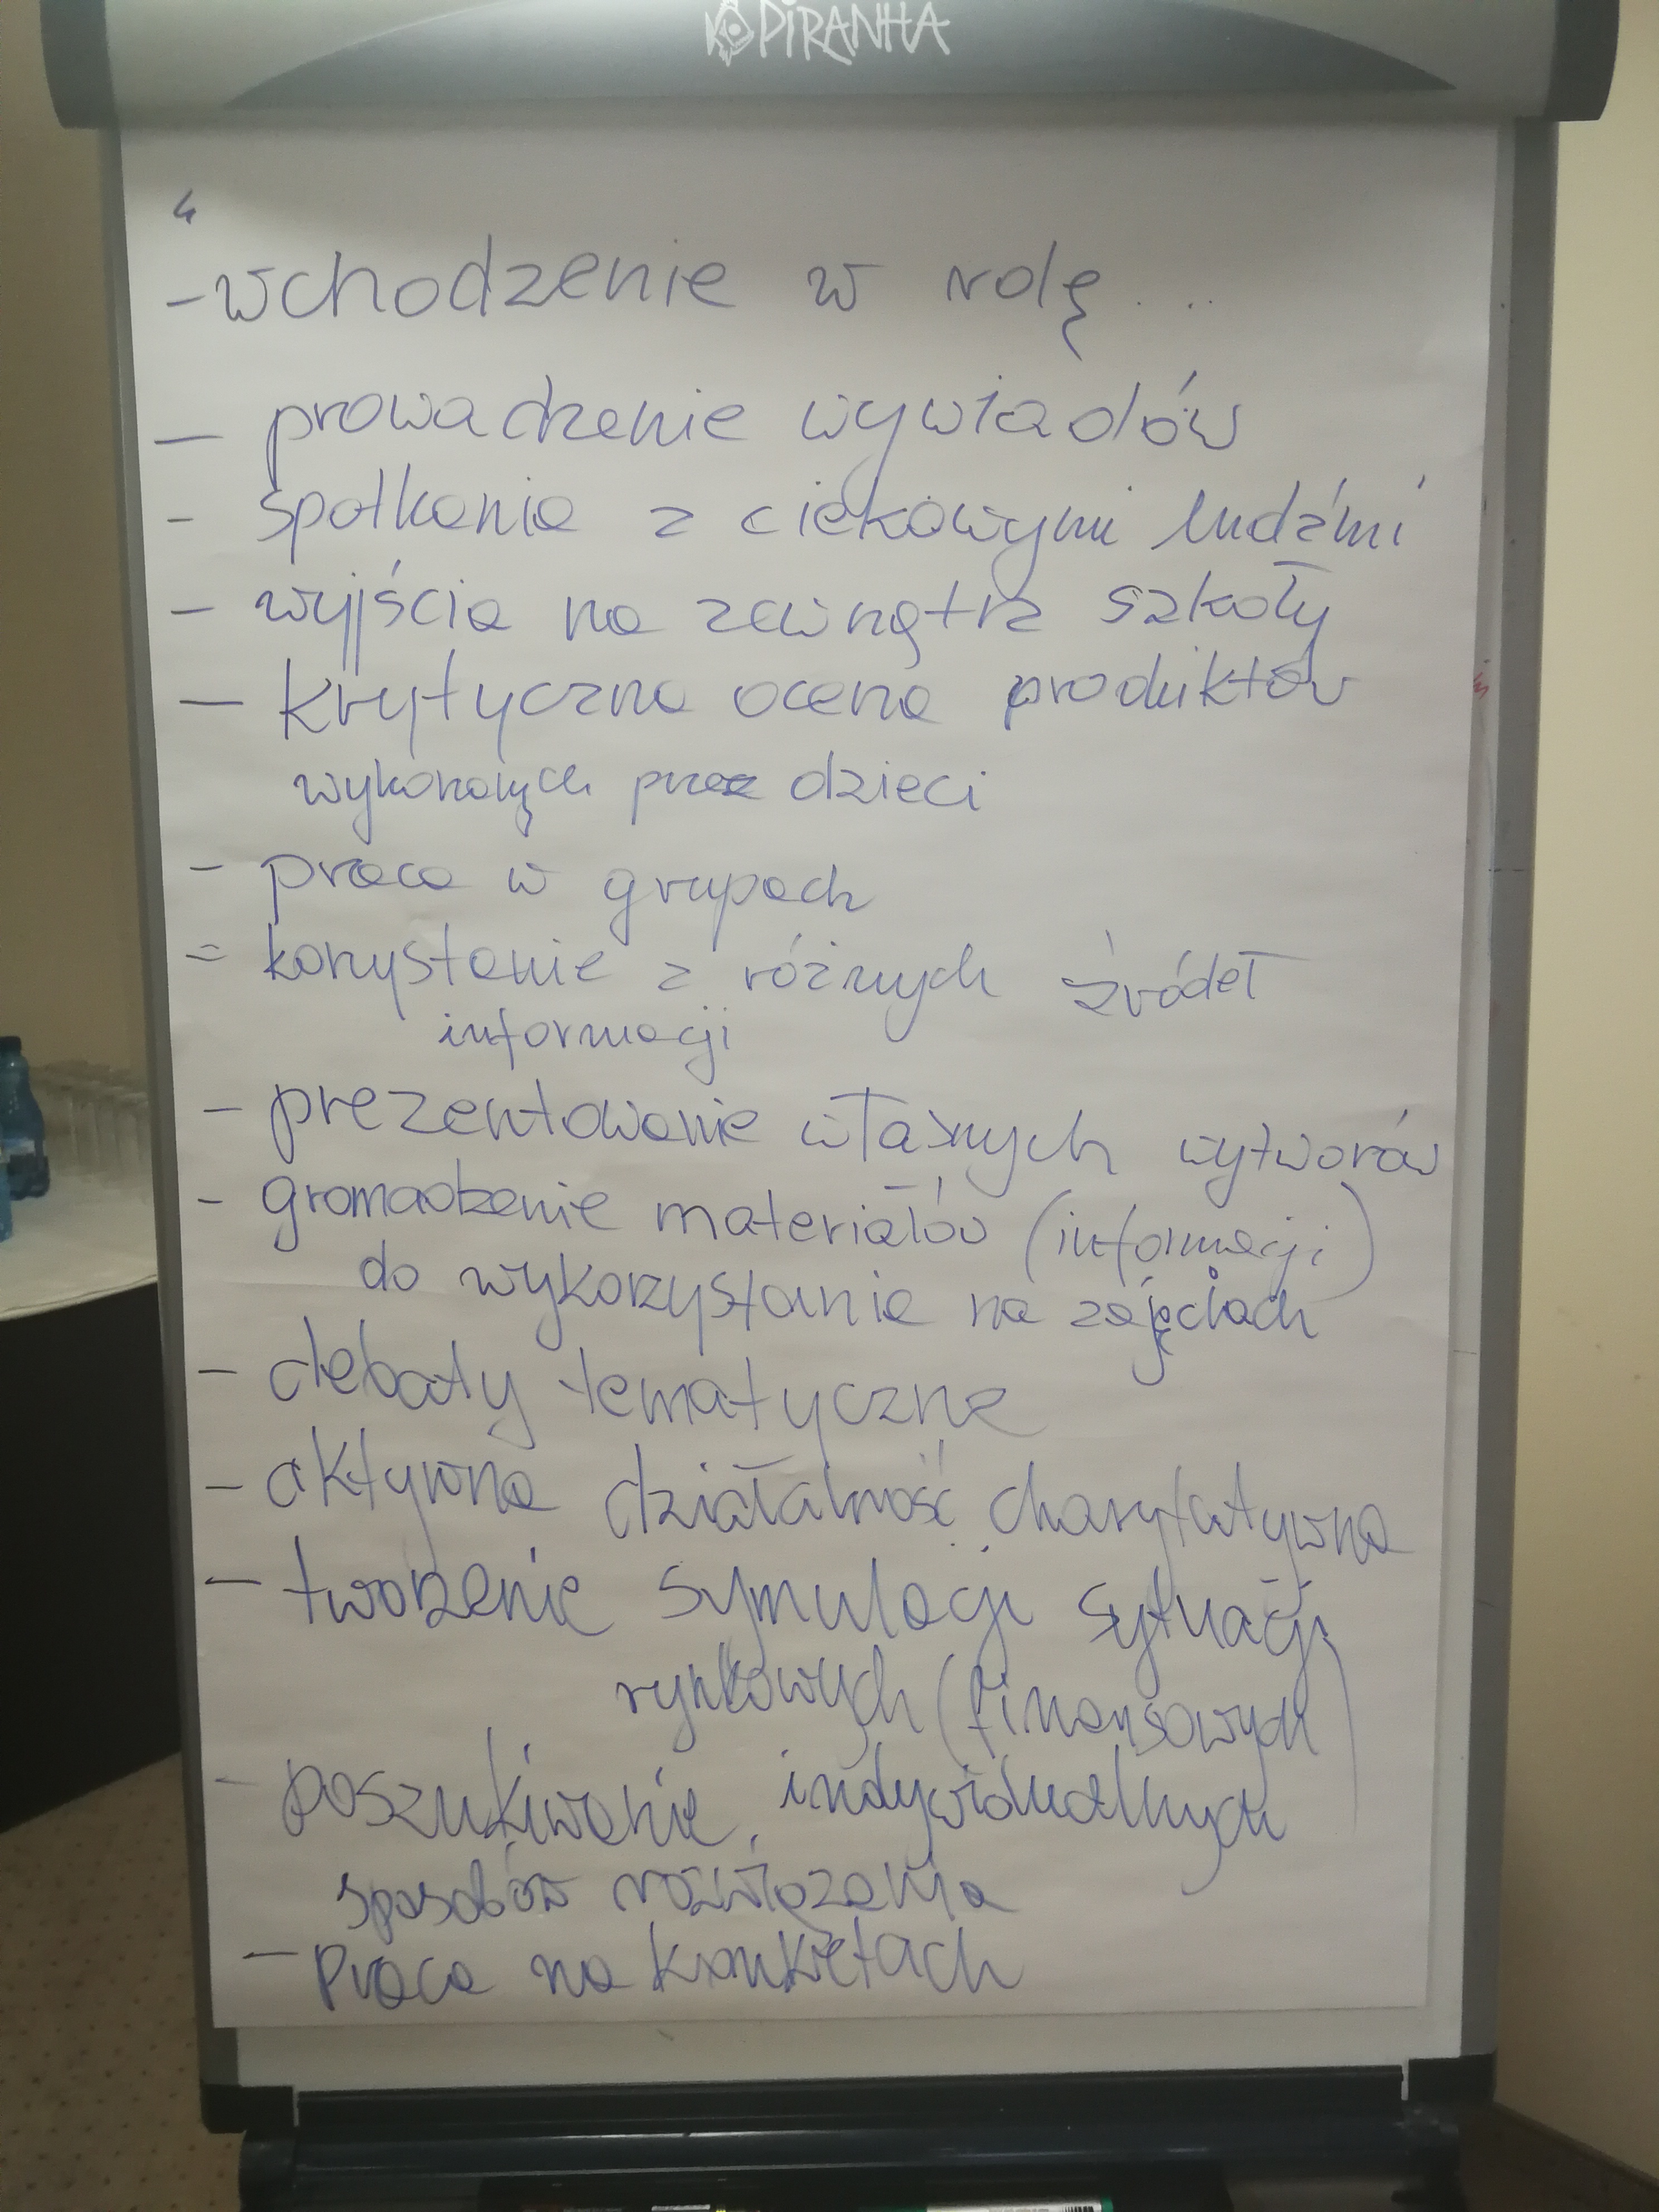 PIRANHA
4
- wchodzenie w rolę ...
- prowadzenie wywiadów
- spotkania z ciekawymi ludźmi
- wyjścia na zewnątrz szkoły
- krytyczna ocena produktów
wykonanych przez dzieci
- praca w grupach
- korzystanie z różnych źródeł
informacji
- prezentowanie własnych wytworów
- gromadzenie materiałów (informacji)
do wykorzystania na zajęciach
- debaty tematyczne
- aktywna działalność charytatywna
- tworzenie symulacji sytuacji
rynkowych (finansowych)
- poszukiwanie indywidualnych
sposobów rozwiązania
- Praca na konkretach